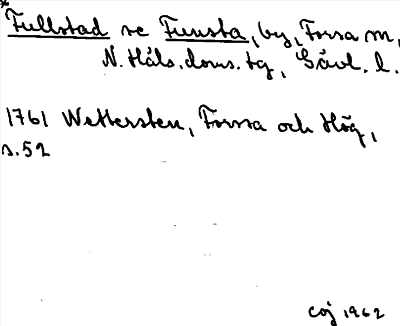 *Fullstad se Funsta, by, Forsa sn,
N. Häls. doms. tg, Gävl. l.
1761 Wettersten, Forssa och Hög,
s. 52
COJ 1962